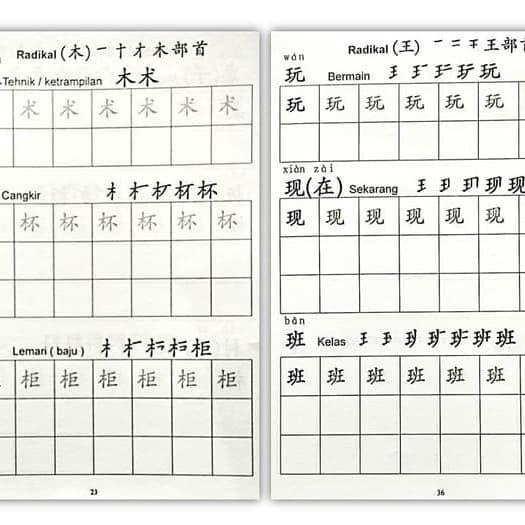 Radikal (木) 一 十 才 木 部 首
Tehnik / ketrampilan 木 术
术 术 术 术 术 术
Cangkir
杯 杯 杯 杯 杯 杯
Lemari ( baju )
柜 柜 柜 柜 柜 柜
23
Radikal (王) 一 二 干 王 部 首
wán
玩 Bermain 玩
玩 玩 玩 玩 玩 玩
xiàn zài
现(在) Sekarang
现 现 现 现 现 现
bān
班 Kelas 班
班 班 班 班 班 班
36